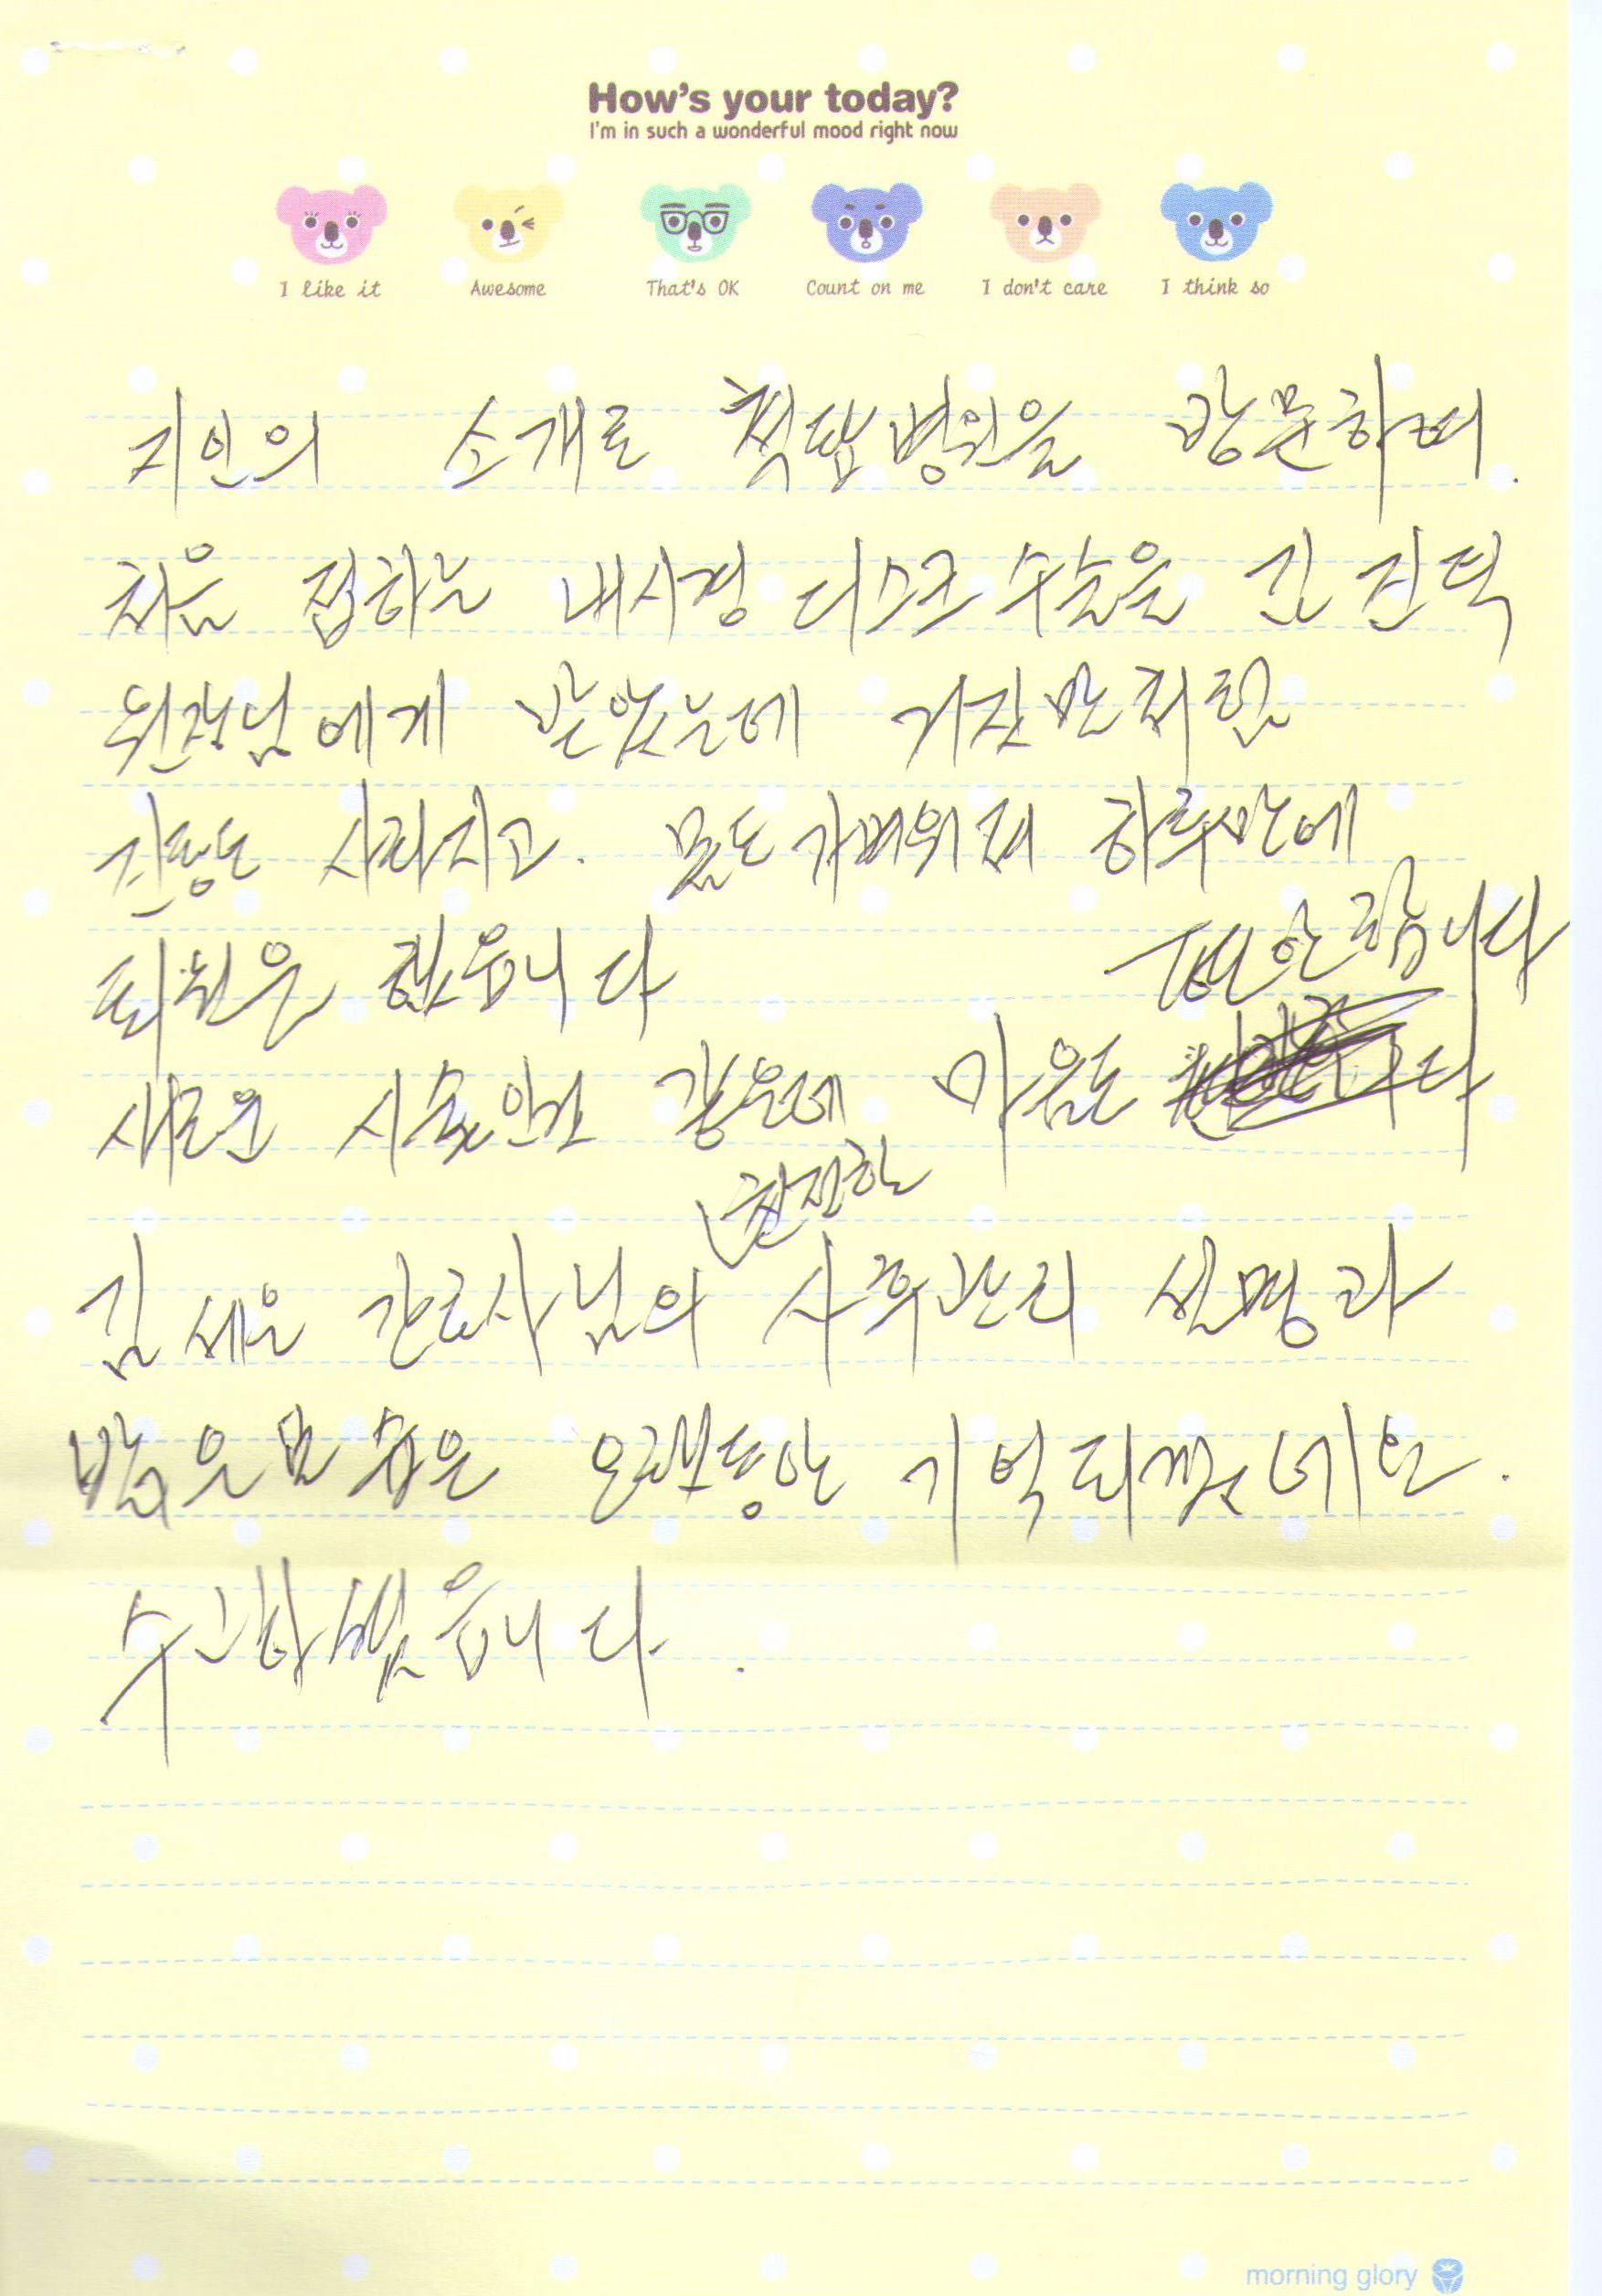 How's your today?
I'm in such a wonderful mood right now
I like it
Awesome
That's OK
Count on me
I don't care
I think so
지인의 소개로 척탑병원을 방문하며.
처음 접하는 내시경 디스크 수술을
원장님에게 받았는데 거짓말처럼
진통도 사라지고. 몸도 가벼워져 하루만에
퇴원을 했읍니다
편안함니다
새로운 시술인것 같은데 마음도
친절한
김세은 간호사님의 사후관리 설명과
밝은 모습은 오랫동안 기억되겠네요.
수고하셨읍니다.
morning glory